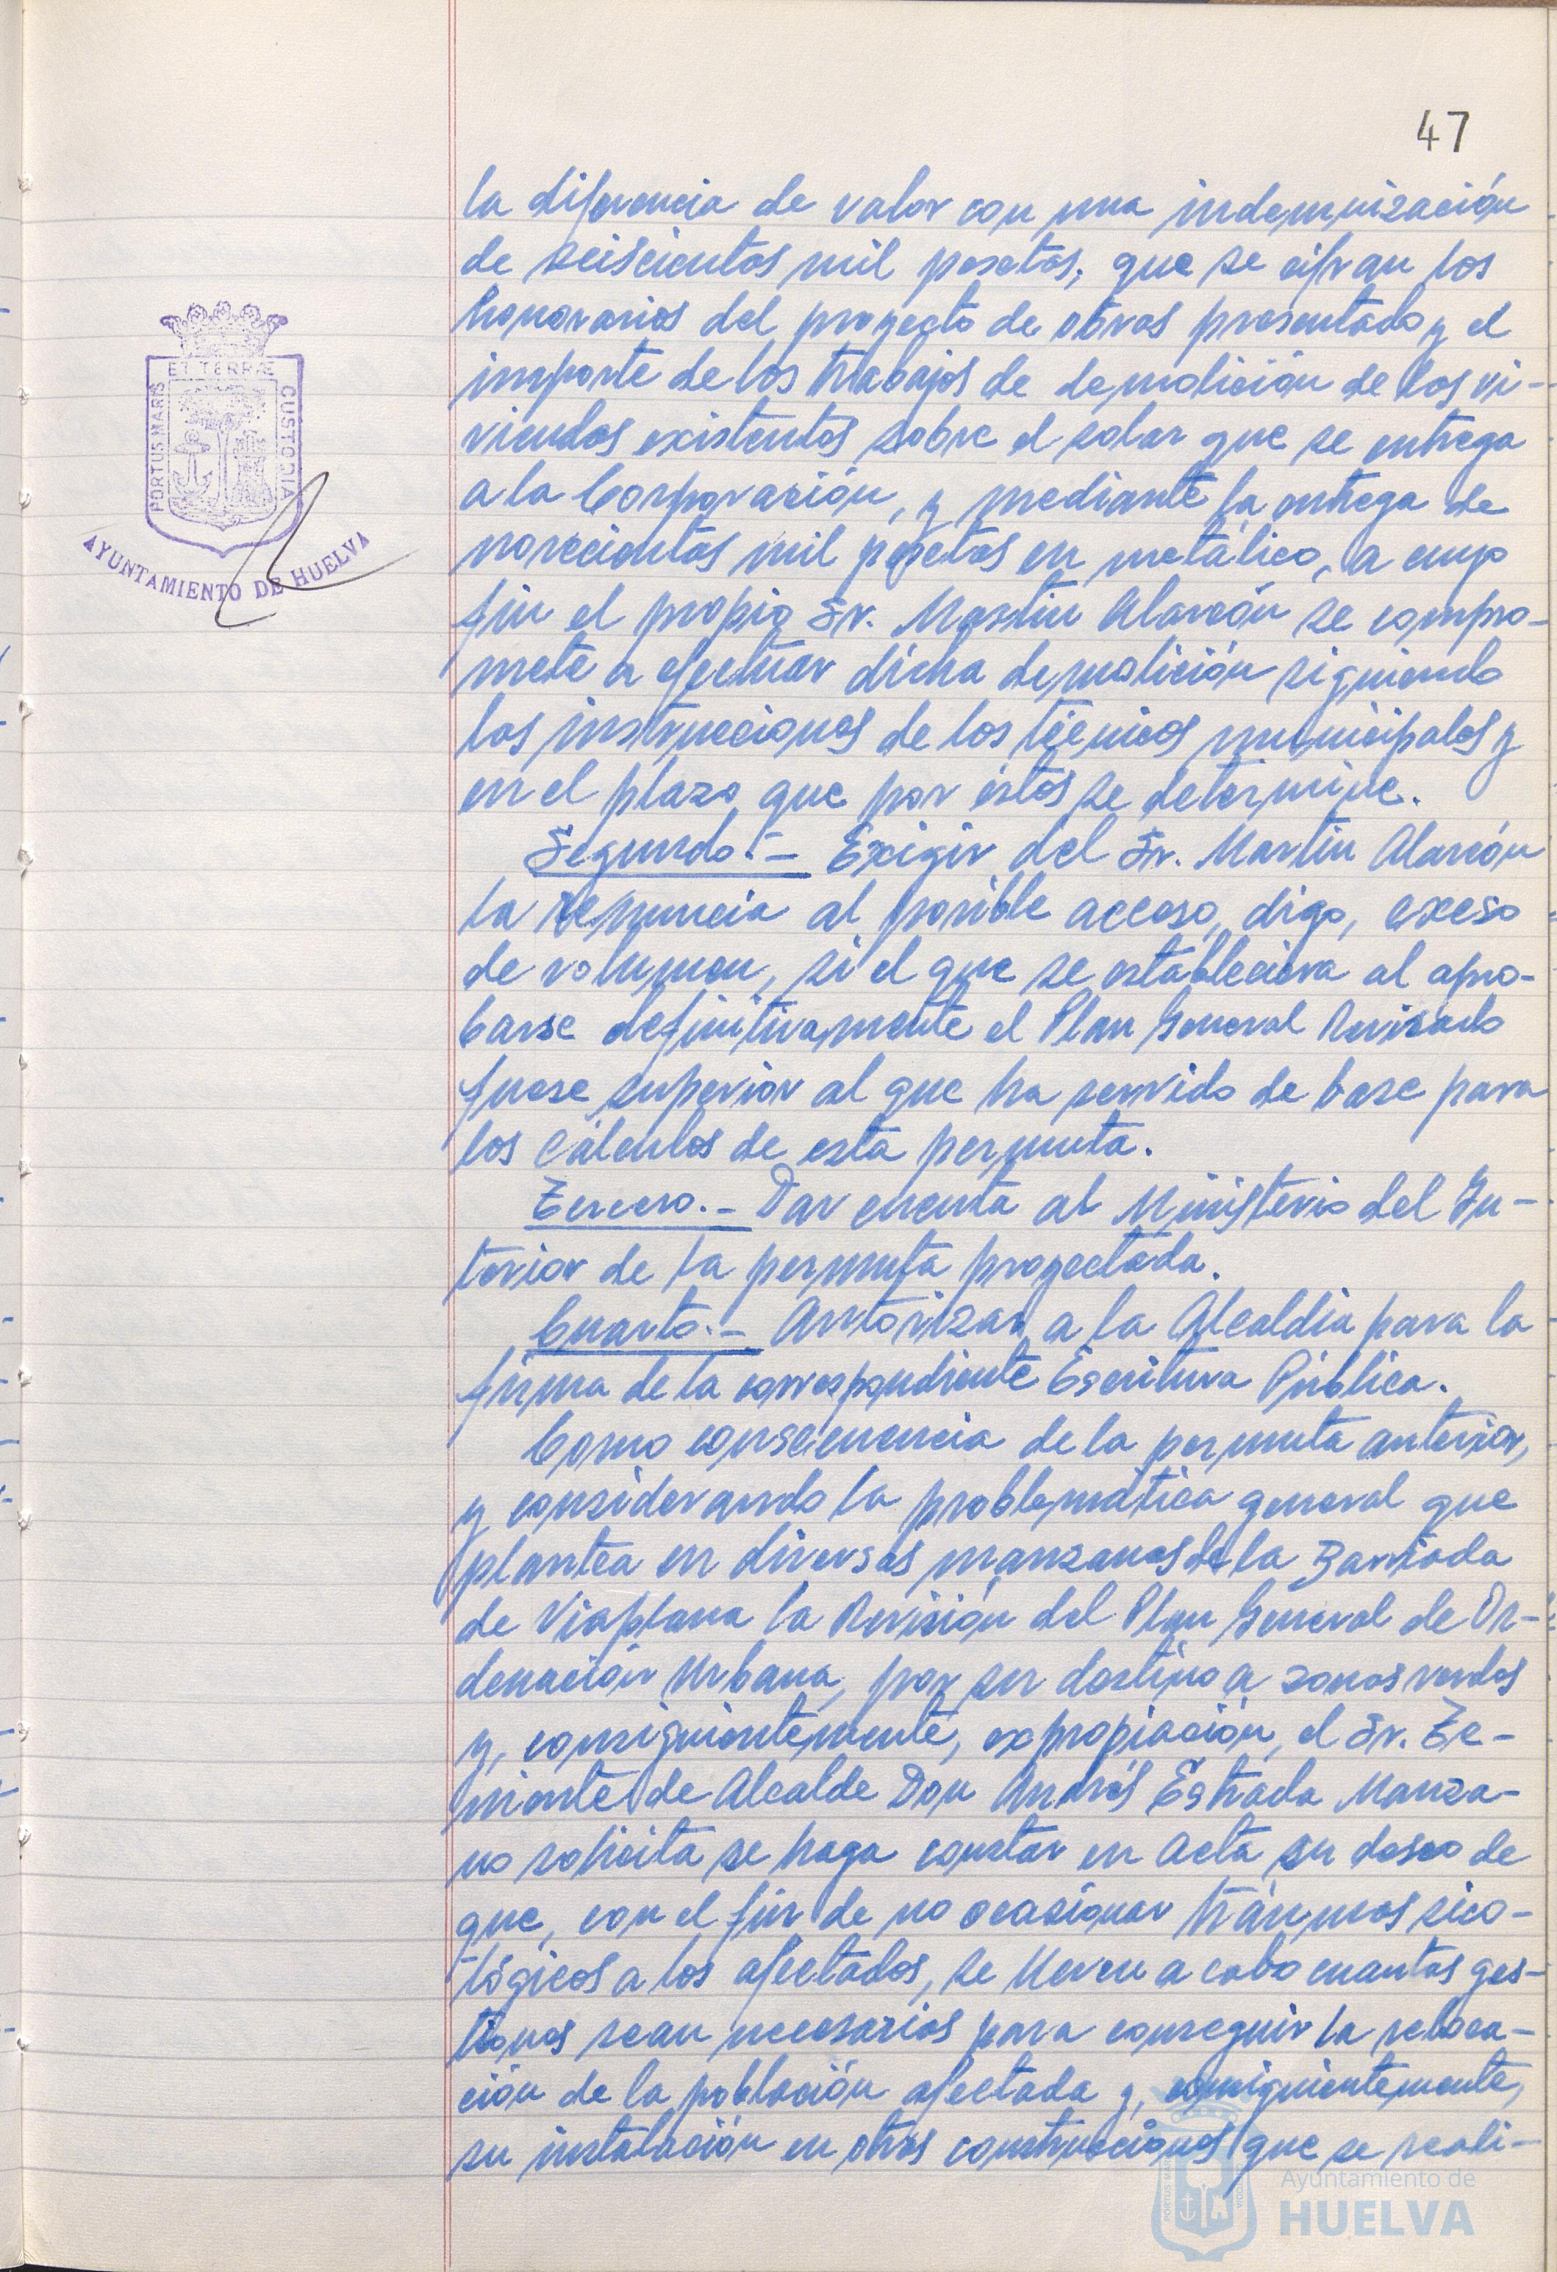 47
la diferencia de valor con una indemnización
de seiscientas mil pesetas, que se cifran los
honorarios del proyecto de obras presentado y el
importe de los trabajos de demolición de las vi-
viendas existentes sobre el solar que se entrega
a la Corporación, y mediante la entrega de
novecientas mil pesetas en metálico, a cuyo
fin el propio Sr. Martin Alarcón se compro-
mete a efectuar dicha demolición siguiendo
las instrucciones de los técnicos municipales y
en el plazo que por éstos se determine.
Segundo.- Exigir del Sr. Martin Alarcón
la renuncia al posible acceso, digo, exceso
de volumen, si el que se estableciera al apro-
barse definitivamente el Plan General Revisado
fuese superior al que ha servido de base para
los cálculos de esta permuta.
Tercero.- Dar cuenta al Ministerio del In-
terior de la permuta proyectada.
Cuarto.- Autorizar a la Alcaldia para la
firma de la correspondiente Escritura Pública.
Como consecuencia de la permuta anterior,
y considerando la problemática general que
plantea en diversas manzanas de la Barriada
de Viaplana la Revisión del Plan General de Or-
denación Urbana, por su destino a zonas verdes
y, consiguientemente, expropiación, el Sr. Te-
niente de Alcalde Don Andrés Estrada Manza-
no solicita se haga constar en Acta su deseo de
que, con el fin de no ocasionar tráumas sico-
lógicos a los afectados, se lleven a cabo cuantas ges-
tiones sean necesarias para conseguir la reloca-
ción de la población afectada y, consiguientemente,
su instalación en otras construcciones que se reali-
PORTUS MARIS ET TERRÆ CUSTODIA
AYUNTAMIENTO DE HUELVA
Ayuntamiento de
HUELVA